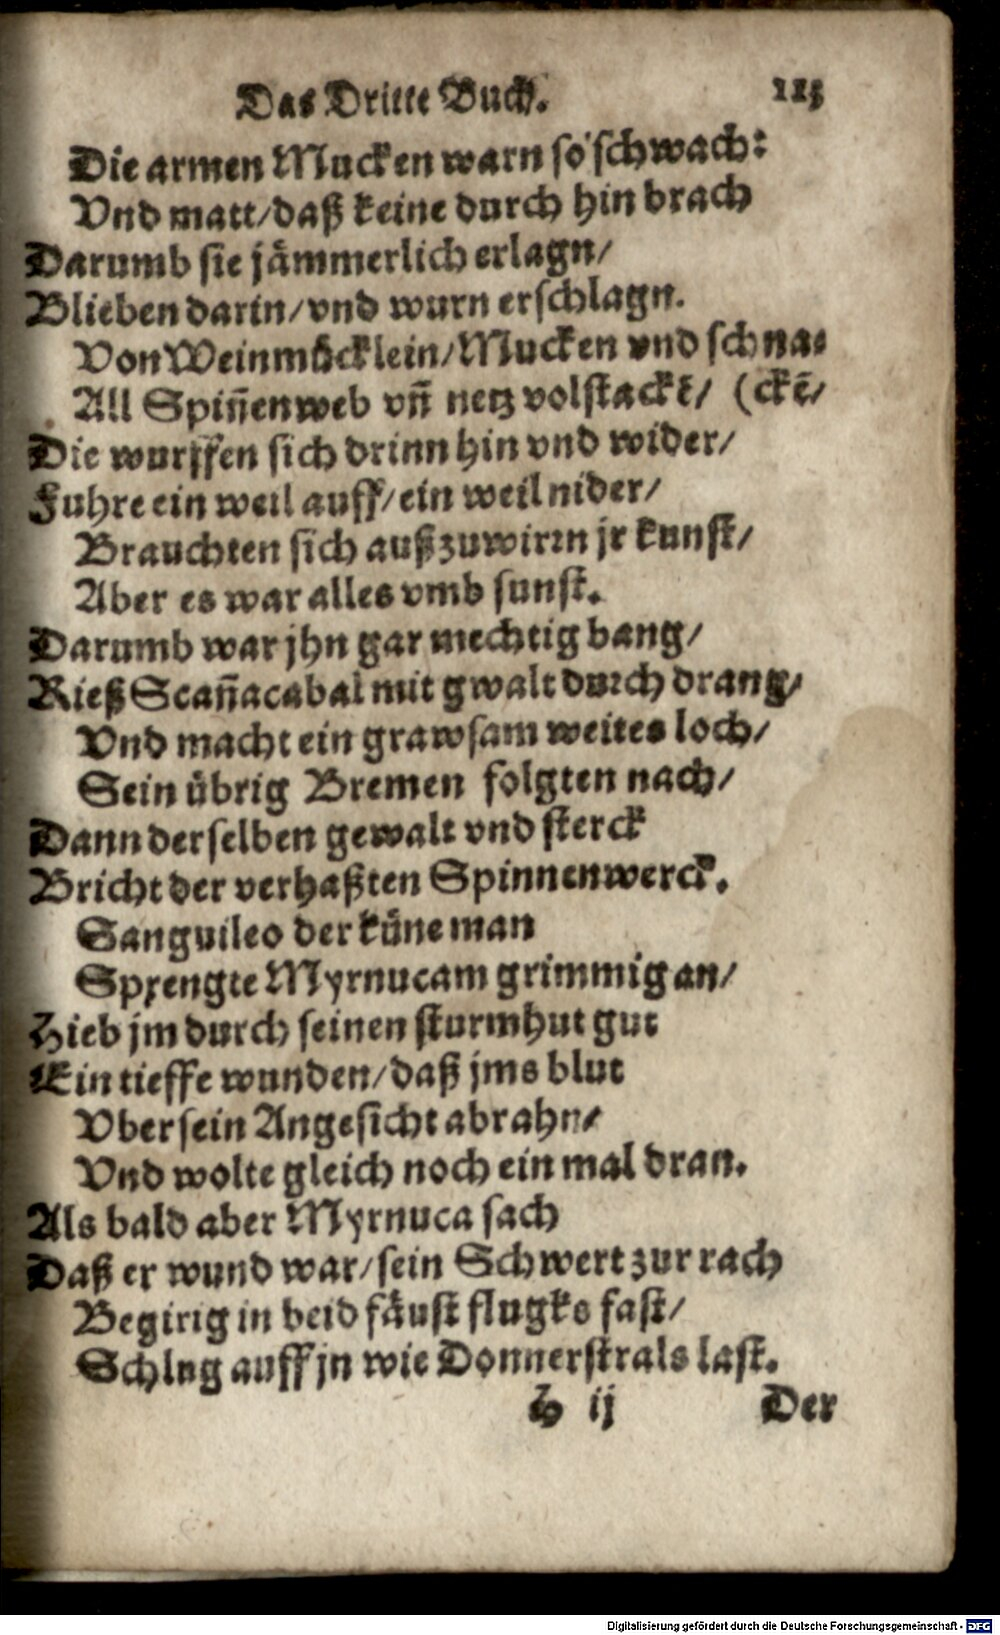 Das Dritte Buch. 113
Die armen Mucken warn so schwach:
Vnd matt/daß keine durch hin brach
Darumb sie jämmerlich erlagn/
Blieben darin/vnd wurn erschlagn.
Von Weinmücklein/Mucken vnd schna-
All Spiñenweb vñ netz volstackẽ/ (ckẽ/
Die wurffen sich drinn hin vnd wider/
Fuhre ein weil auff/ein weil nider/
Brauchten sich außzuwirrn jr kunst/
Aber es war alles vmb sunst.
Darumb war jhn gar mechtig bang/
Rieß Scañacabal mit gwalt durch drang/
Vnd macht ein grawsam weites loch/
Sein übrig Bremen folgten nach/
Dann derselben gewalt vnd sterck
Bricht der verhaßten Spinnenwerck.
Sanguileo der küne man
Sprengte Myrnucam grimmig an/
Hieb jm durch seinen sturmhut gut
Ein tieffe wunden/daß jms blut
Vber sein Angesicht abrahn/
Vnd wolte gleich noch ein mal dran.
Als bald aber Myrnuca sach
Daß er wund war/sein Schwert zur rach
Begirig in beid fäust flugks fast/
Schlug auff jn wie Donnerstrals last.
H ij Der
Digitalisierung gefördert durch die Deutsche Forschungsgemeinschaft - DFG